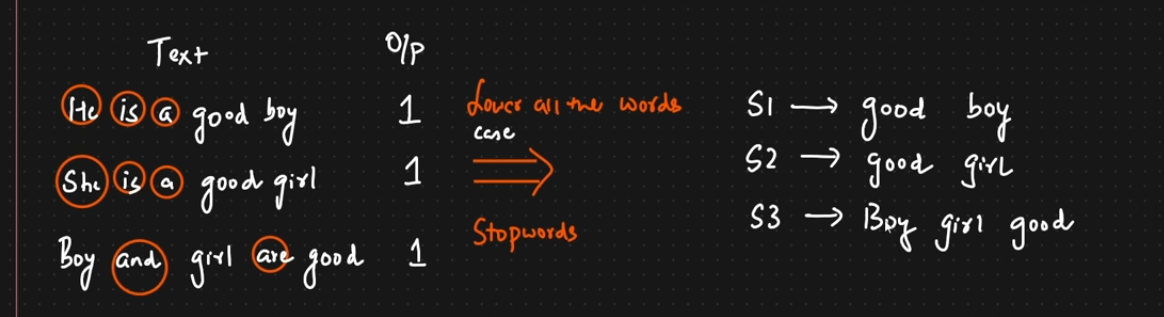 Text O/P
He is a good boy 1
She is a good girl 1
Boy and girl are good 1
Lower all the words
case
Stopwords
S1 → good boy
S2 → good girl
S3 → Boy girl good